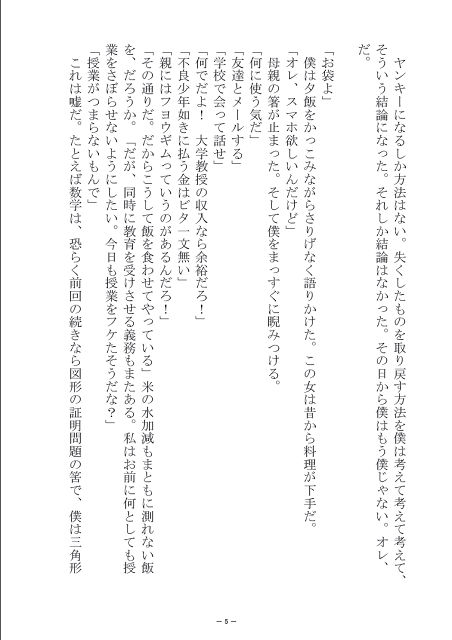 ヤンキーになるしか方法はない。失くしたものを取り戻す方法を僕は考えて考えて考えて、
そういう結論になった。それしか結論はなかった。その日から僕はもう僕じゃない。オレ、
だ。
「お袋よ」
僕は夕飯をかっこみながらさりげなく語りかけた。この女は昔から料理が下手だ。
「オレ、スマホ欲しいんだけど」
母親の箸が止まった。そして僕をまっすぐに睨みつける。
「何に使う気だ」
「友達とメールする」
「学校で会って話せ」
「何でだよ！　大学教授の収入なら余裕だろ！」
「不良少年如きに払う金はビタ一文無い」
「親にはフヨウギムっていうのがあるんだろ！」
「その通りだ。だからこうして飯を食わせてやっている」米の水加減もまともに測れない飯
を、だろうか。「だが、同時に教育を受けさせる義務もまたある。私はお前に何としても授
業をさぼらせないようにしたい。今日も授業をフケたそうだな？」
「授業がつまらないもんで」
これは嘘だ。たとえば数学は、恐らく前回の続きなら図形の証明問題の筈で、僕は三角形
－5－